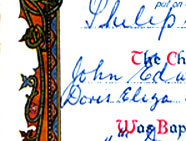 Philip
The Ch
John Edw
Doris Eliza
Was Bap